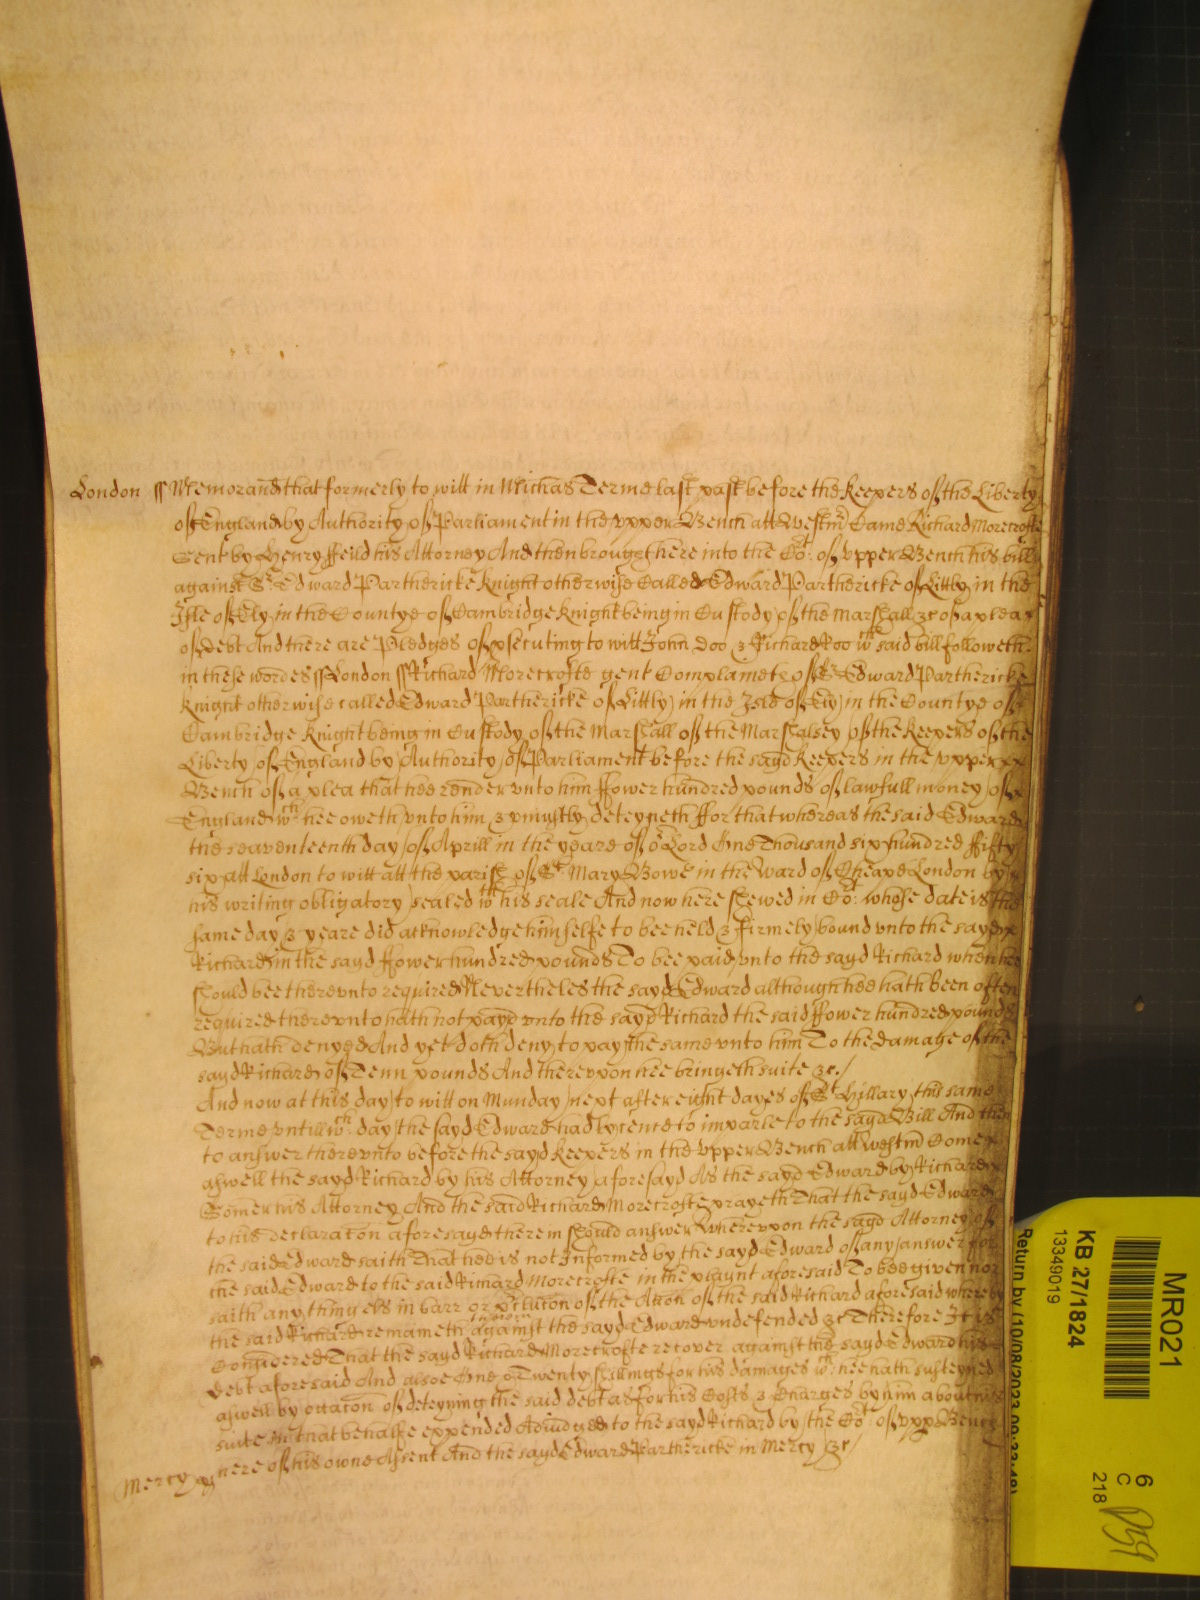 London ss Memorand that formerly to witt in Michas Terme last past before the Keepers of the Liberty
of England by Authority of Parliament in the vpper Bench att Westmr Came Richard Morecrofte
Gent by Henry ffeild his Attorney And then brought here into the Cot: of vpper Bench his bill
against Sr Edward Parthericke Knight otherwise Called Edward Parthericke of Littly in the
Isle of Ely in the Countye of Cambridge Knight being in Custody of the Marshall &c of a plea
of debt And there are Pledges of psecuting to witt John Doo & Richard Roo wch said bill followeth
in these wordes ss London ss Richard Morecrofte gent Complaineth of Sr Edward Parthericke
Knight otherwise called Edward Parthericke of Littly in the Isle of Ely in the Countye of
Cambridge Knight being in Custody of the Marshall of the Marshalsey of the Keepers of the
Liberty of England by Authority of Parliament before the sayd Keepers in the vpper
Bench of a plea that hee render vnto him ffower hundred pounds of lawfull money of
England wch hee oweth vnto him & vniustly deteyneth ffor that whereas the said Edward
the seaventeenth day of Aprill in the yeare of or Lord One Thousand six hundred ffifty
six att London to witt att the parish of St Mary Bowe in the Ward of Cheape London by
his writing obligatory sealed wth his seale And now here shewed in Cot: whose date is the
same day & yeare did acknowledge himselfe to bee held & firmely bound vnto the sayd
Richard in the sayd ffower hundred pounds To bee paid vnto the sayd Richard when hee
should bee therevnto required Nevertheles the sayd Edward although hee hath been often
required therevnto hath not payd vnto the sayd Richard the said ffower hundred pounds
But hath denyed And yet doth deny to pay the same vnto him To the damage of the
sayd Richard of Tenn pounds And therevpon hee bringeth suite &c./
And now at this day to witt on Munday next after eight dayes of St Hillary this same
Terme vntill wch day the sayd Edward had lycence to imparle to the sayd Bill And then
to answer therevnto before the sayd Keepers in the vpper Bench att Westmr Come
aswell the sayd Richard by his Attorney aforesayd As the sayd Edward by Richard
Gomer his Attorney And the said Richard Morecrofte prayeth That the sayd Edward
to his declaracon aforesayd therein should answer Wherevpon the sayd Attorney of
the said Edward saith That hee is not Informed by the sayd Edward of any answer for
the said Edward to the said Richard Morecrofte in the playnt aforesaid To bee given nor
saith any thing els in barr or pclucon of the Accon of the said Richard aforesaid whereby
the said Richard remaineth against the sayd Edward vndefended &c Therefore It is
Considered That the sayd Richard Morecrofte recover against the sayd Edward his
debt aforesaid And alsoe One & Twenty shillings for his damages wch hee hath susteyned
aswell by occacon of deteyning the said debt as for his Costs & Charges by him about his
suite in that behalfe expended Adiudged to the sayd Richard by the Cot of vpp Bench
here of his owne Assent And the sayd Edward Parthericke in Mercy &c/
Mercy
MR021
KB 27/1824
13349019
6
C
218